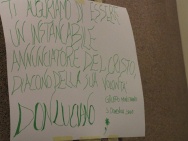 TI AUGURIAMO DI ESSERE
UN INSTANCABILE
ANNUNCIATORE DEL CRISTO,
DIACONO DELLA SUA VOLONTÀ
DON LUCIANO